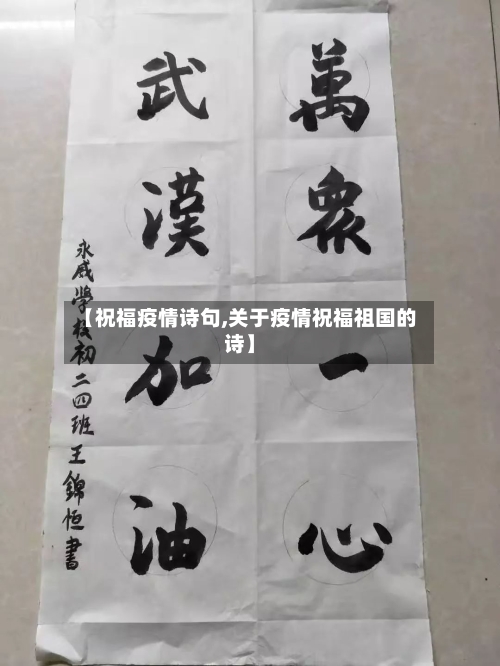 萬衆一心
武漢加油
永威學校初二四班王錦恒書
【祝福疫情诗句,关于疫情祝福祖国的
诗】